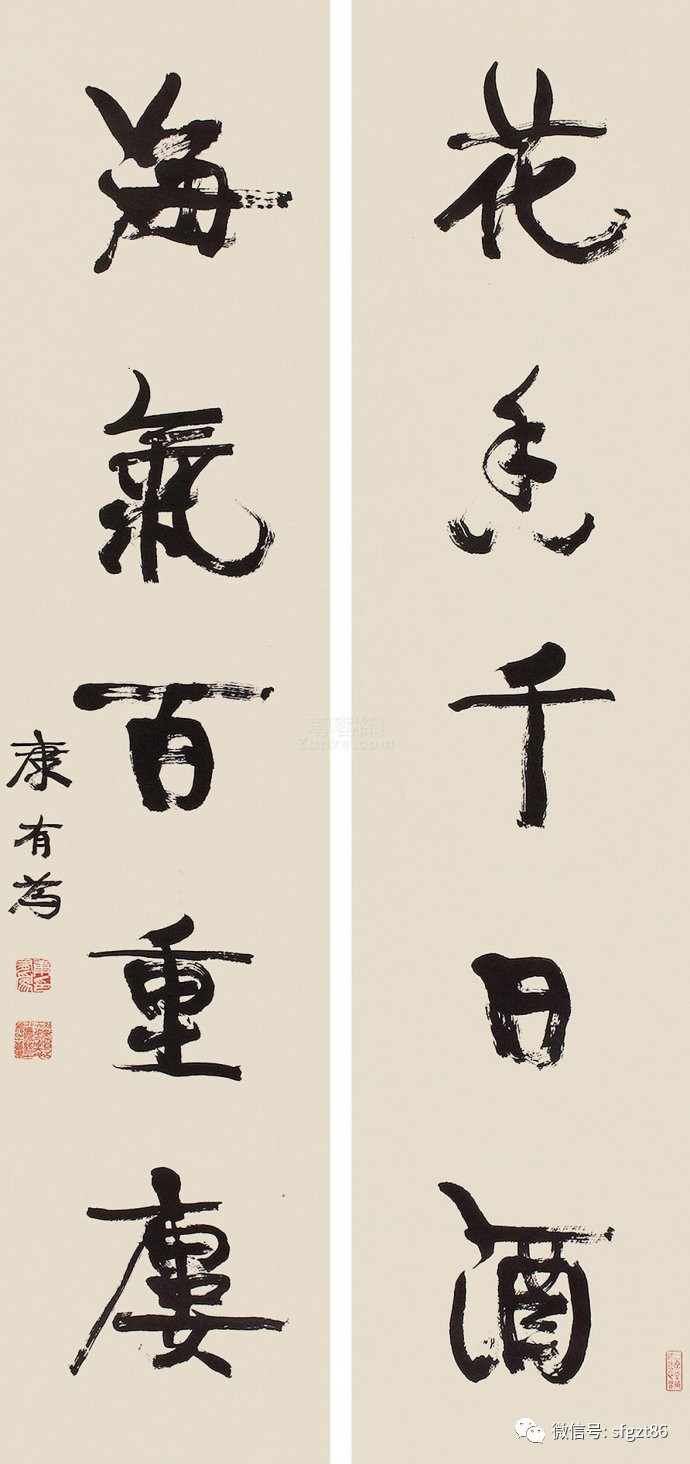 花香千日酒
海氣百重廔
康有為
微信号: sfgzt86